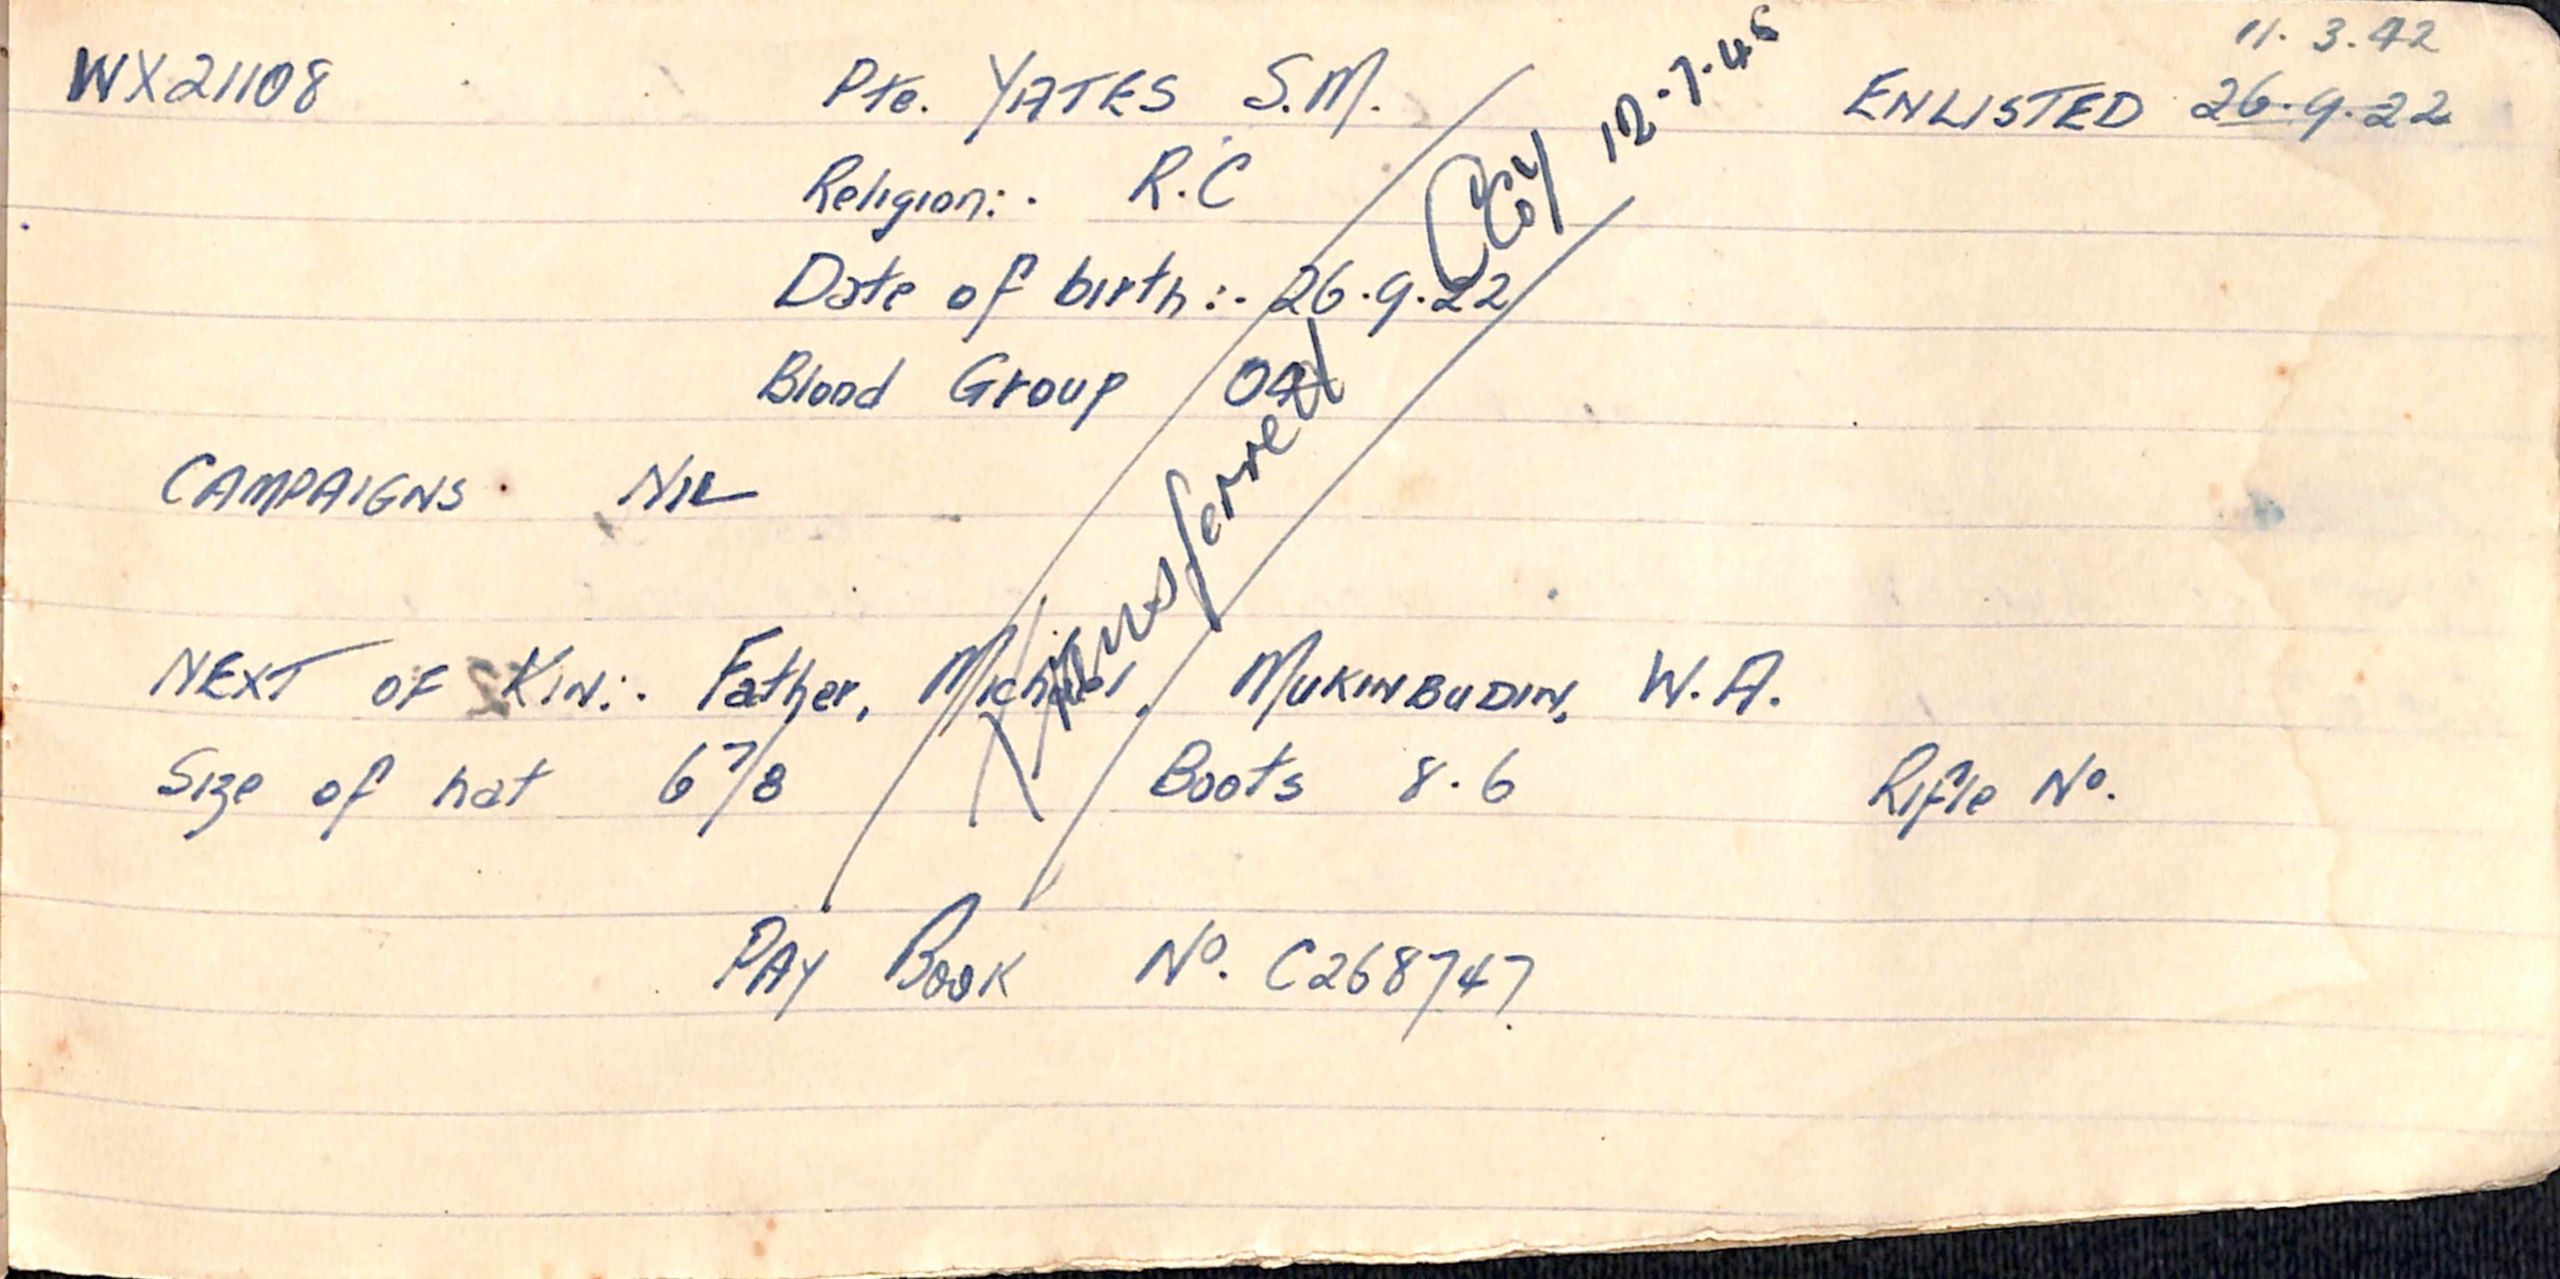 11.3.42
WX21108 Pte. YATES S.M. ENLISTED 26.9.22
Religion:. R.C
Date of birth:. 26.9.22
Blood Group
CAMPAIGNS. NIL
NEXT OF KIN:. Father, Michael, MUKINBUDIN, W.A.
Size of hat 6 7/8 Boots 8.6 Rifle No.
PAY BOOK No. C268747
Transferred Coy 12.7.45